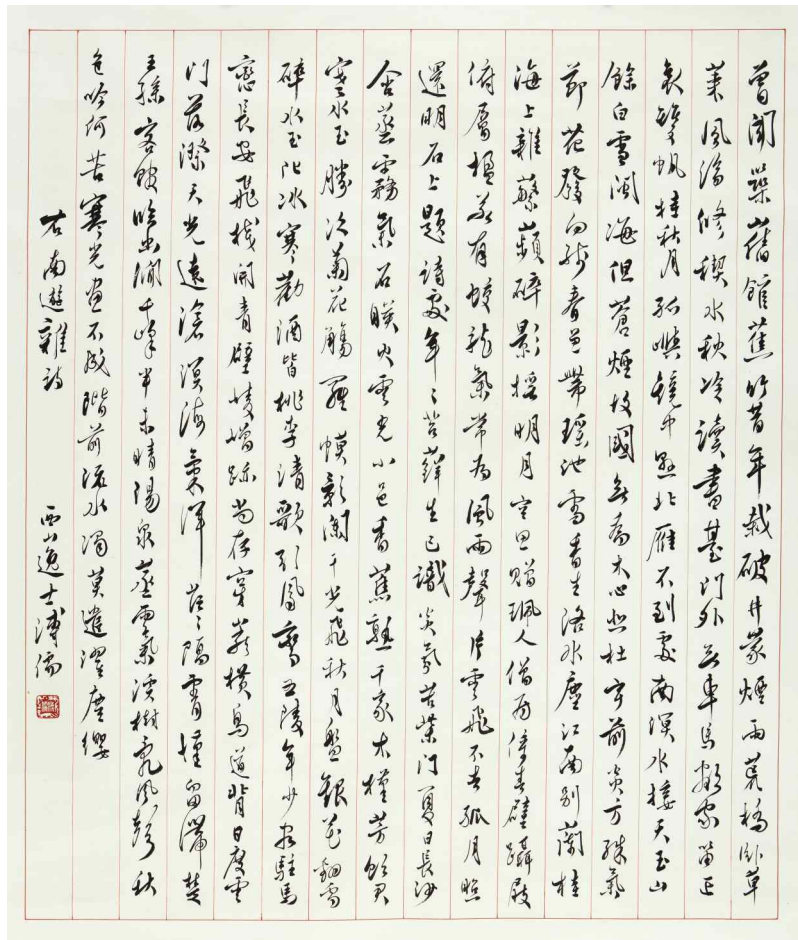 曾聞築舊館蕉竹昔年栽破井蒙煙雨荒橋臥草
萊風淪修禊水秋冷讀書臺門外無車馬鄰家笛正
哀雙帆挂秋月孤嶼鏡中懸北雁不到處南溟水接天玉山
餘白雪閩海但蒼煙故國無喬木心悲杜宇前炎方殊氣
節花發向殘春並帶瑤池露香生洛水塵江南別蘭桂
海上雜蘩蘋碎影搖明月空思贈珮人僧為停壁躡屐
俯層楹若有蛟龍氣常為風雨聲片雲飛不去孤月照
還明石上題詩處年年苔蘚生已識炎氛苦柴門夏日長沙
含蒸霧氣石映火雲光小邑香蕉熟千家木槿芳飲
寒水玉勝泛菊花觴羅幙影闌干光飛秋月盤銀花翻雪
碎水玉比冰寒勸酒皆桃李清歌引鳳鸞五陵年少客駐馬
戀長安飛棧開青壁崚嶒跡尚存穿巖橫鳥道背日度雲
門落潦天光遠滄溟海氣渾茫茫隔霄壤留滯楚
王孫客館臨幽澗千峰半未晴陽泉蒸雲氣溪樹亂風聲秋
色吟何苦寒光畫不成階前流水濁莫遣濯塵纓
右南遊雜詩
西山逸士溥儒